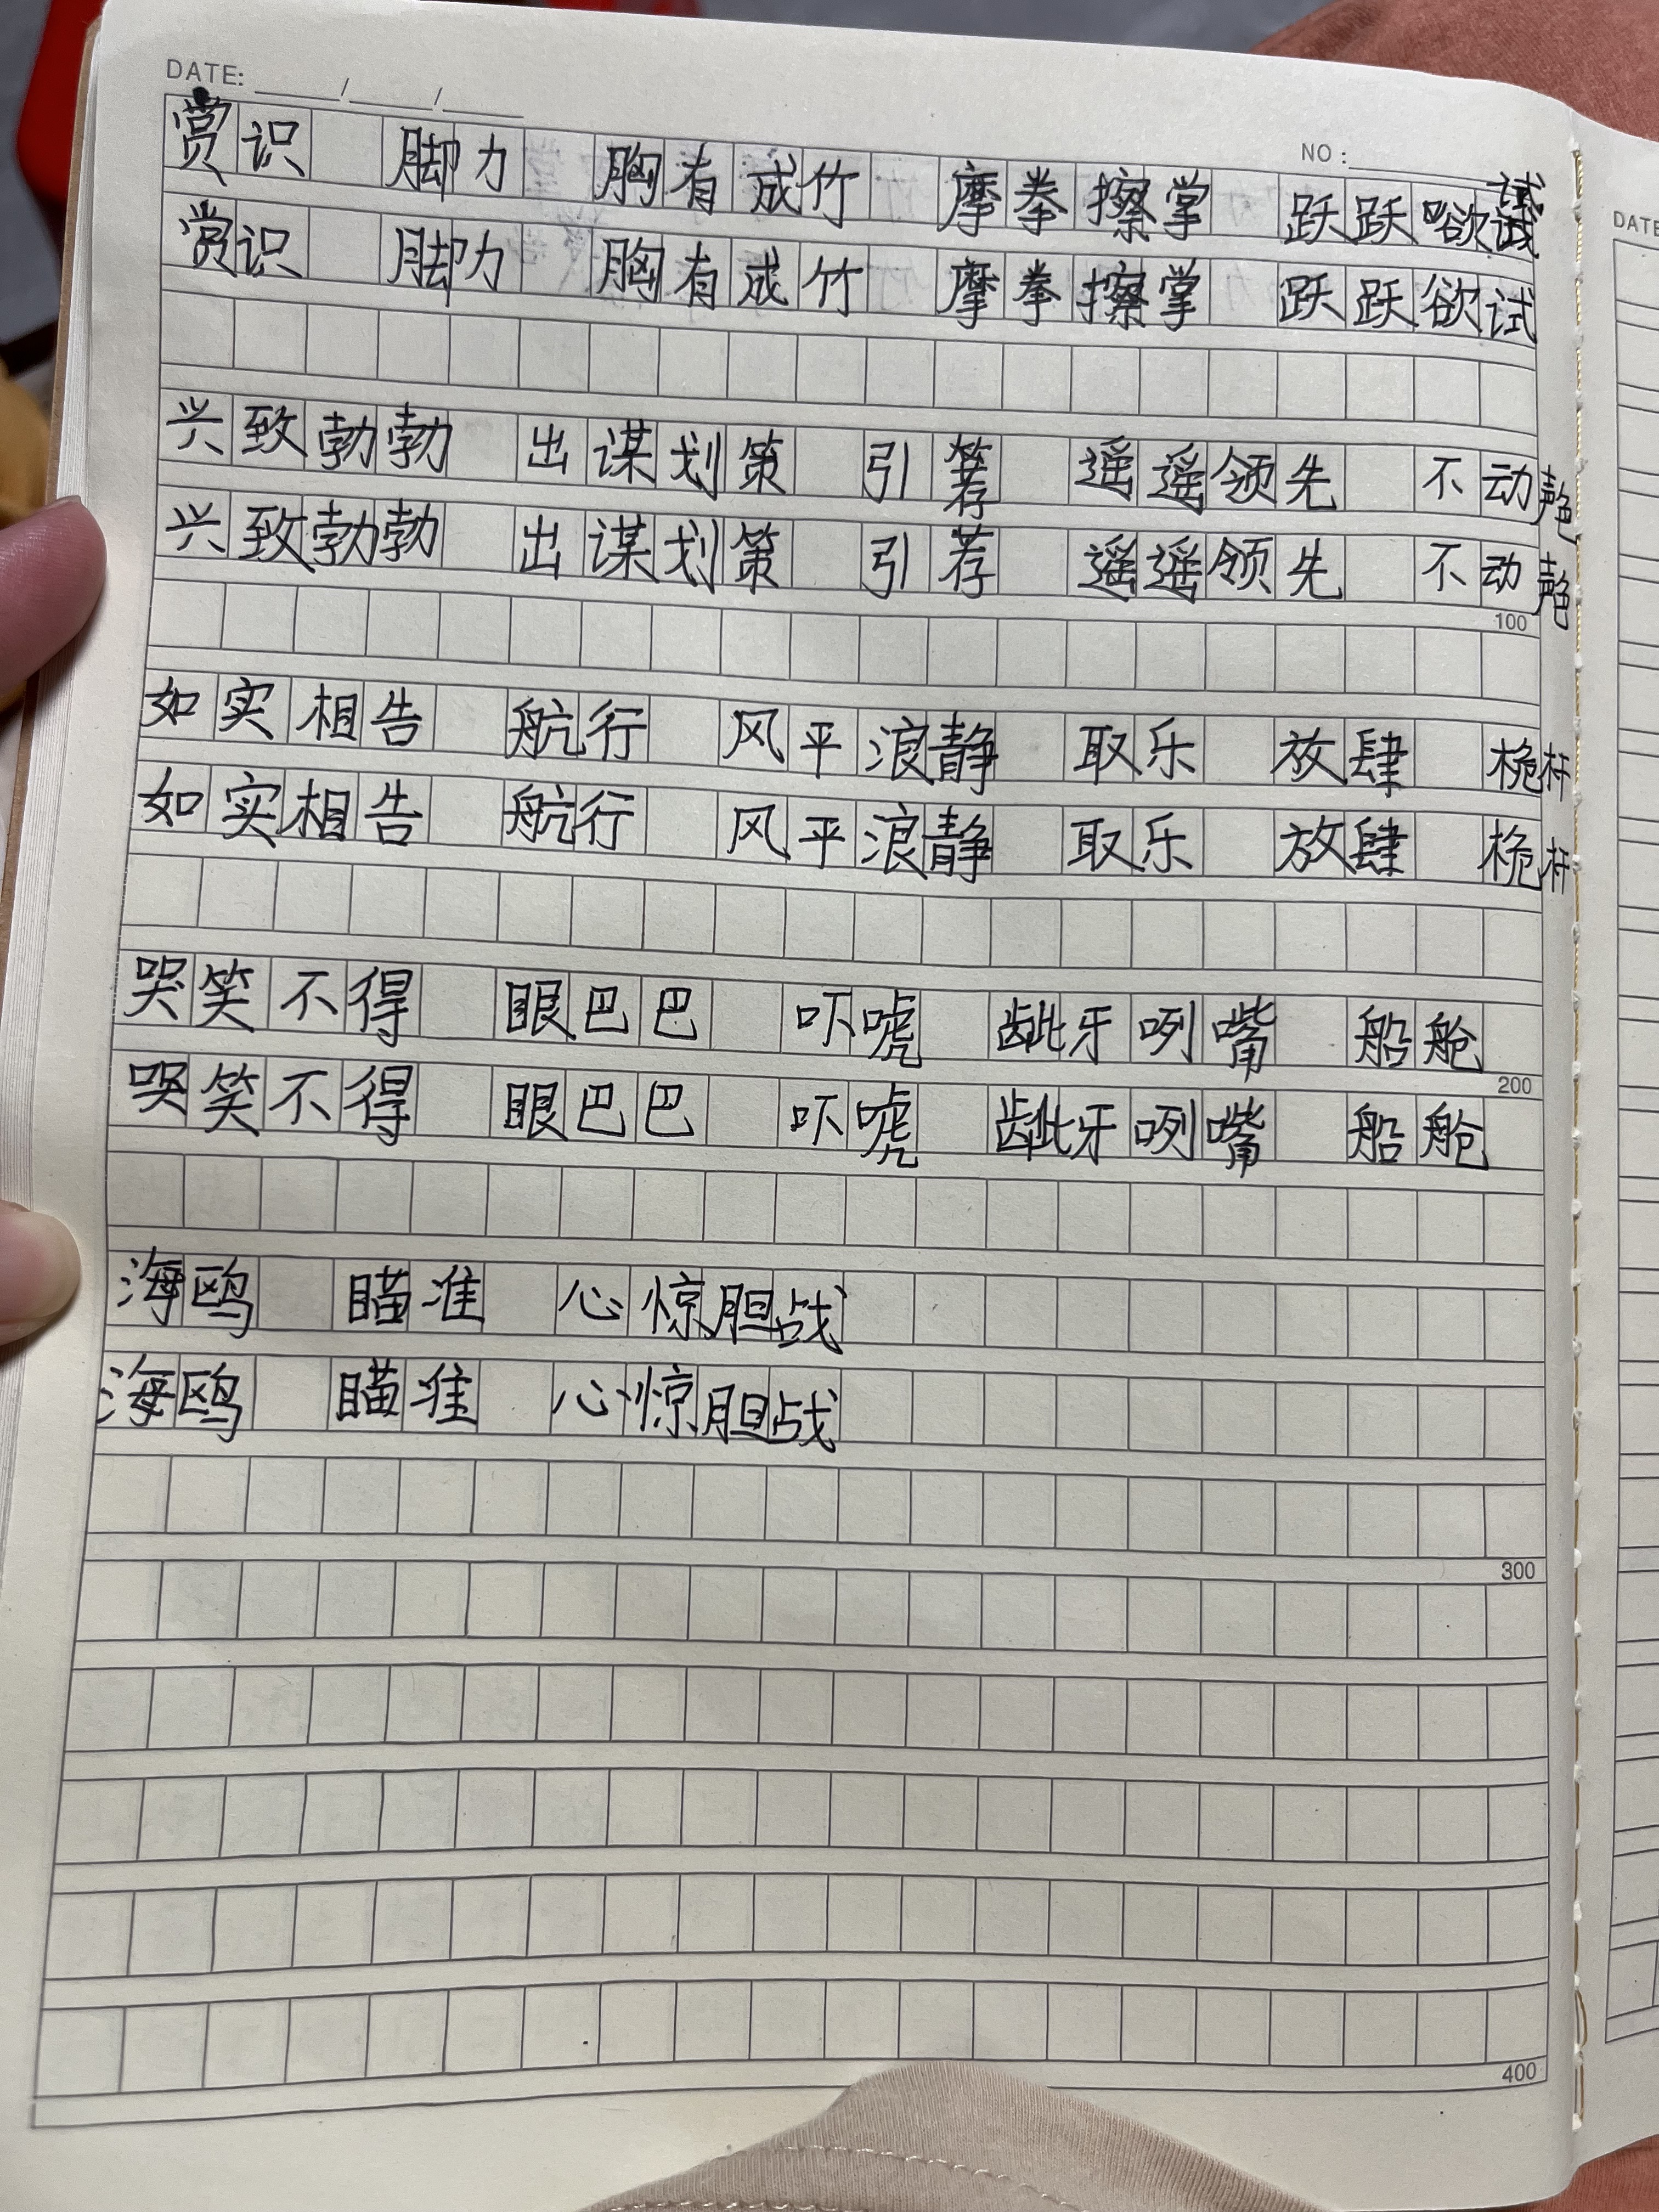 DATE: ____/____/____
NO:
赏识 脚力 胸有成竹 摩拳擦掌 跃跃欲试
赏识 脚力 胸有成竹 摩拳擦掌 跃跃欲试
兴致勃勃 出谋划策 引荐 遥遥领先 不动声色
兴致勃勃 出谋划策 引荐 遥遥领先 不动声色
100
如实相告 航行 风平浪静 取乐 放肆 桅杆
如实相告 航行 风平浪静 取乐 放肆 桅杆
哭笑不得 眼巴巴 吓唬 龇牙咧嘴 船舱
200
哭笑不得 眼巴巴 吓唬 龇牙咧嘴 船舱
海鸥 瞄准 心惊胆战
海鸥 瞄准 心惊胆战
300
400
DATE